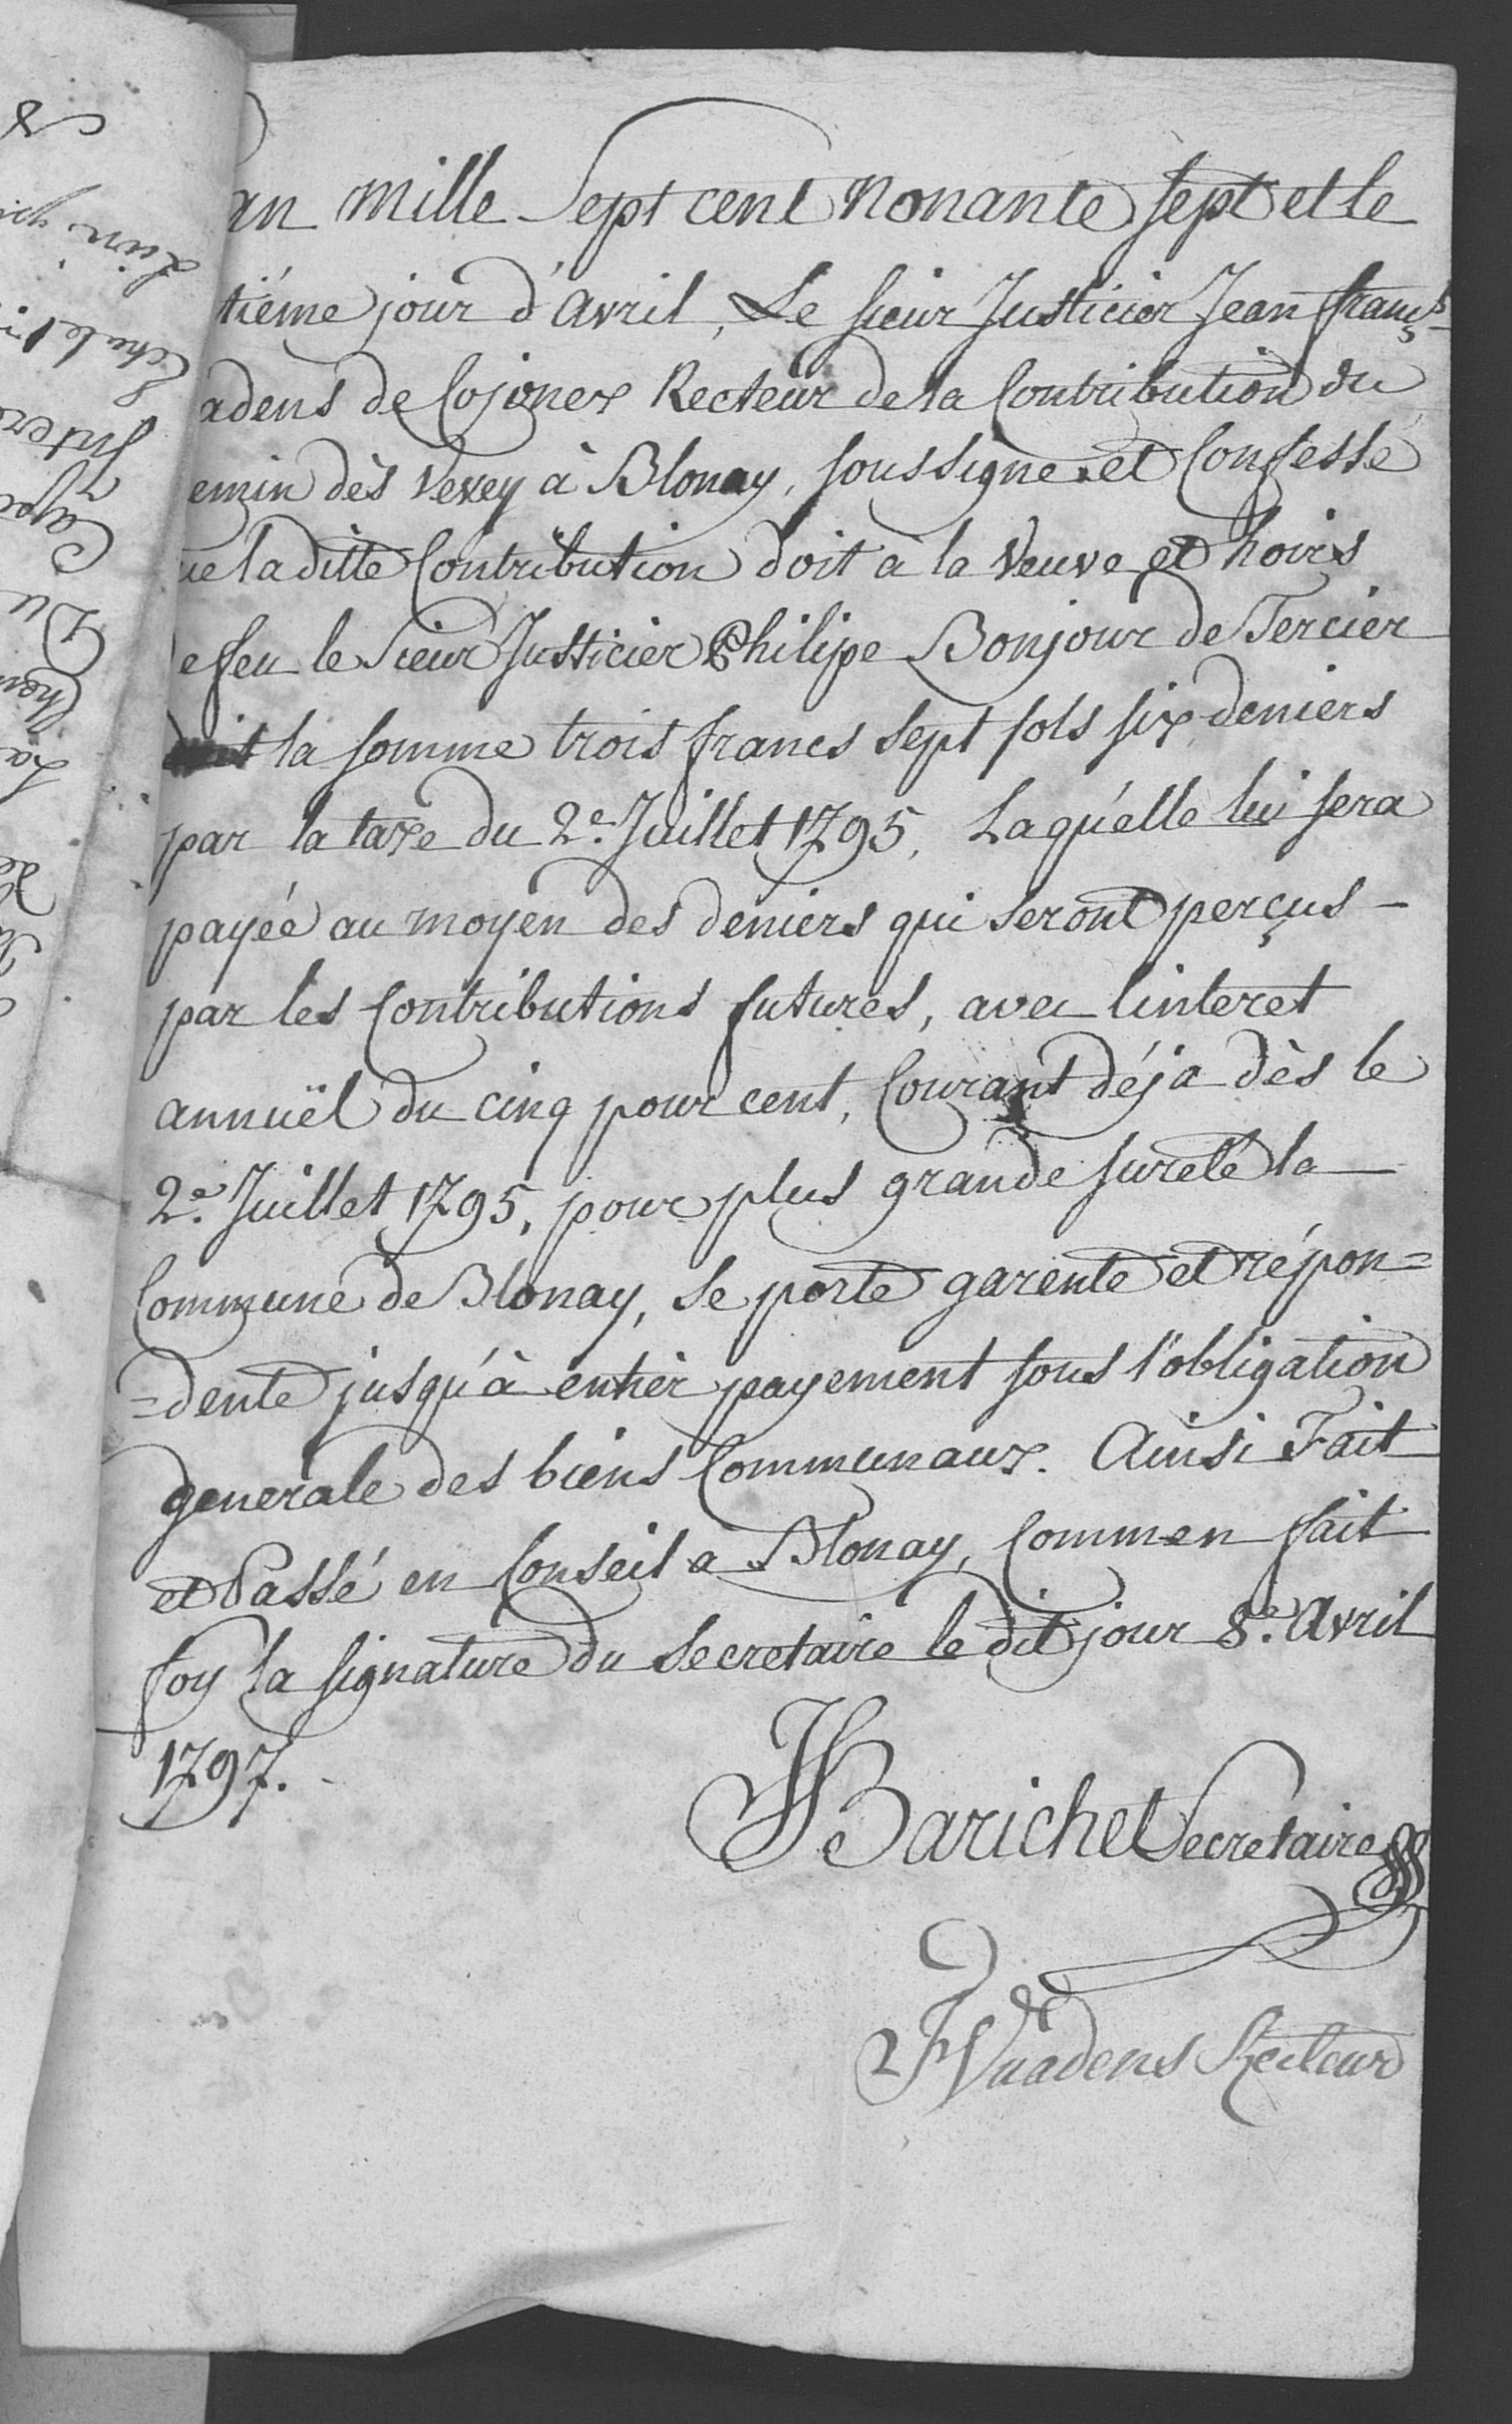 an mille Sept cent Nonante sept et le
tiéme jour d'avril, Le sieur Justicier Jean franç.s
adens de Cojonex Recteur de la Contribution du
emin dès Vevey à Blonay, soussigne et Confesse
ue la ditte Contribution doit à la Veuve et hoirs
e feu le sieur Justicier Philipe Bonjour de Tercier
la somme trois francs sept sols six deniers
par la taxe du 2e. Juillet 1795, Laquelle lui sera
payée au moyen des deniers qui seront perçus -
par les Contributions futures, avec linteret
annuël du cinq pour cent, Courant déja dès le
2e. Juillet 1795, pour plus grande sureté la
Commune de Blonay, se porte garente et répon=
=dente jusqu'à entier payement sous l'obligation
generale des biens Communaux. Ainsi Fait
et Passé en Conseil a Blonay, Commen fait
foy la signature du secretaire le dit jour 8e. Avril
1797.
Barichet Secretaire
Vuadens Recteur